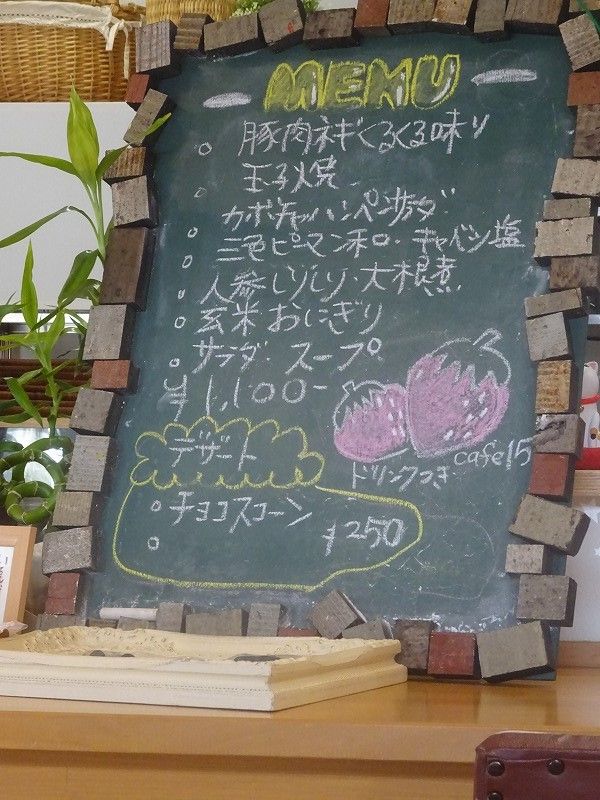 MENU
豚肉ネギくるくる味り
玉子焼
カボチャハンペンサラダ
三色ピーマン和・キャベツ塩
人参しりしり・大根煮
玄米おにぎり
サラダ スープ
¥1,100-
ドリンクつき
cafe15
デザート
チョコスコーン
¥250